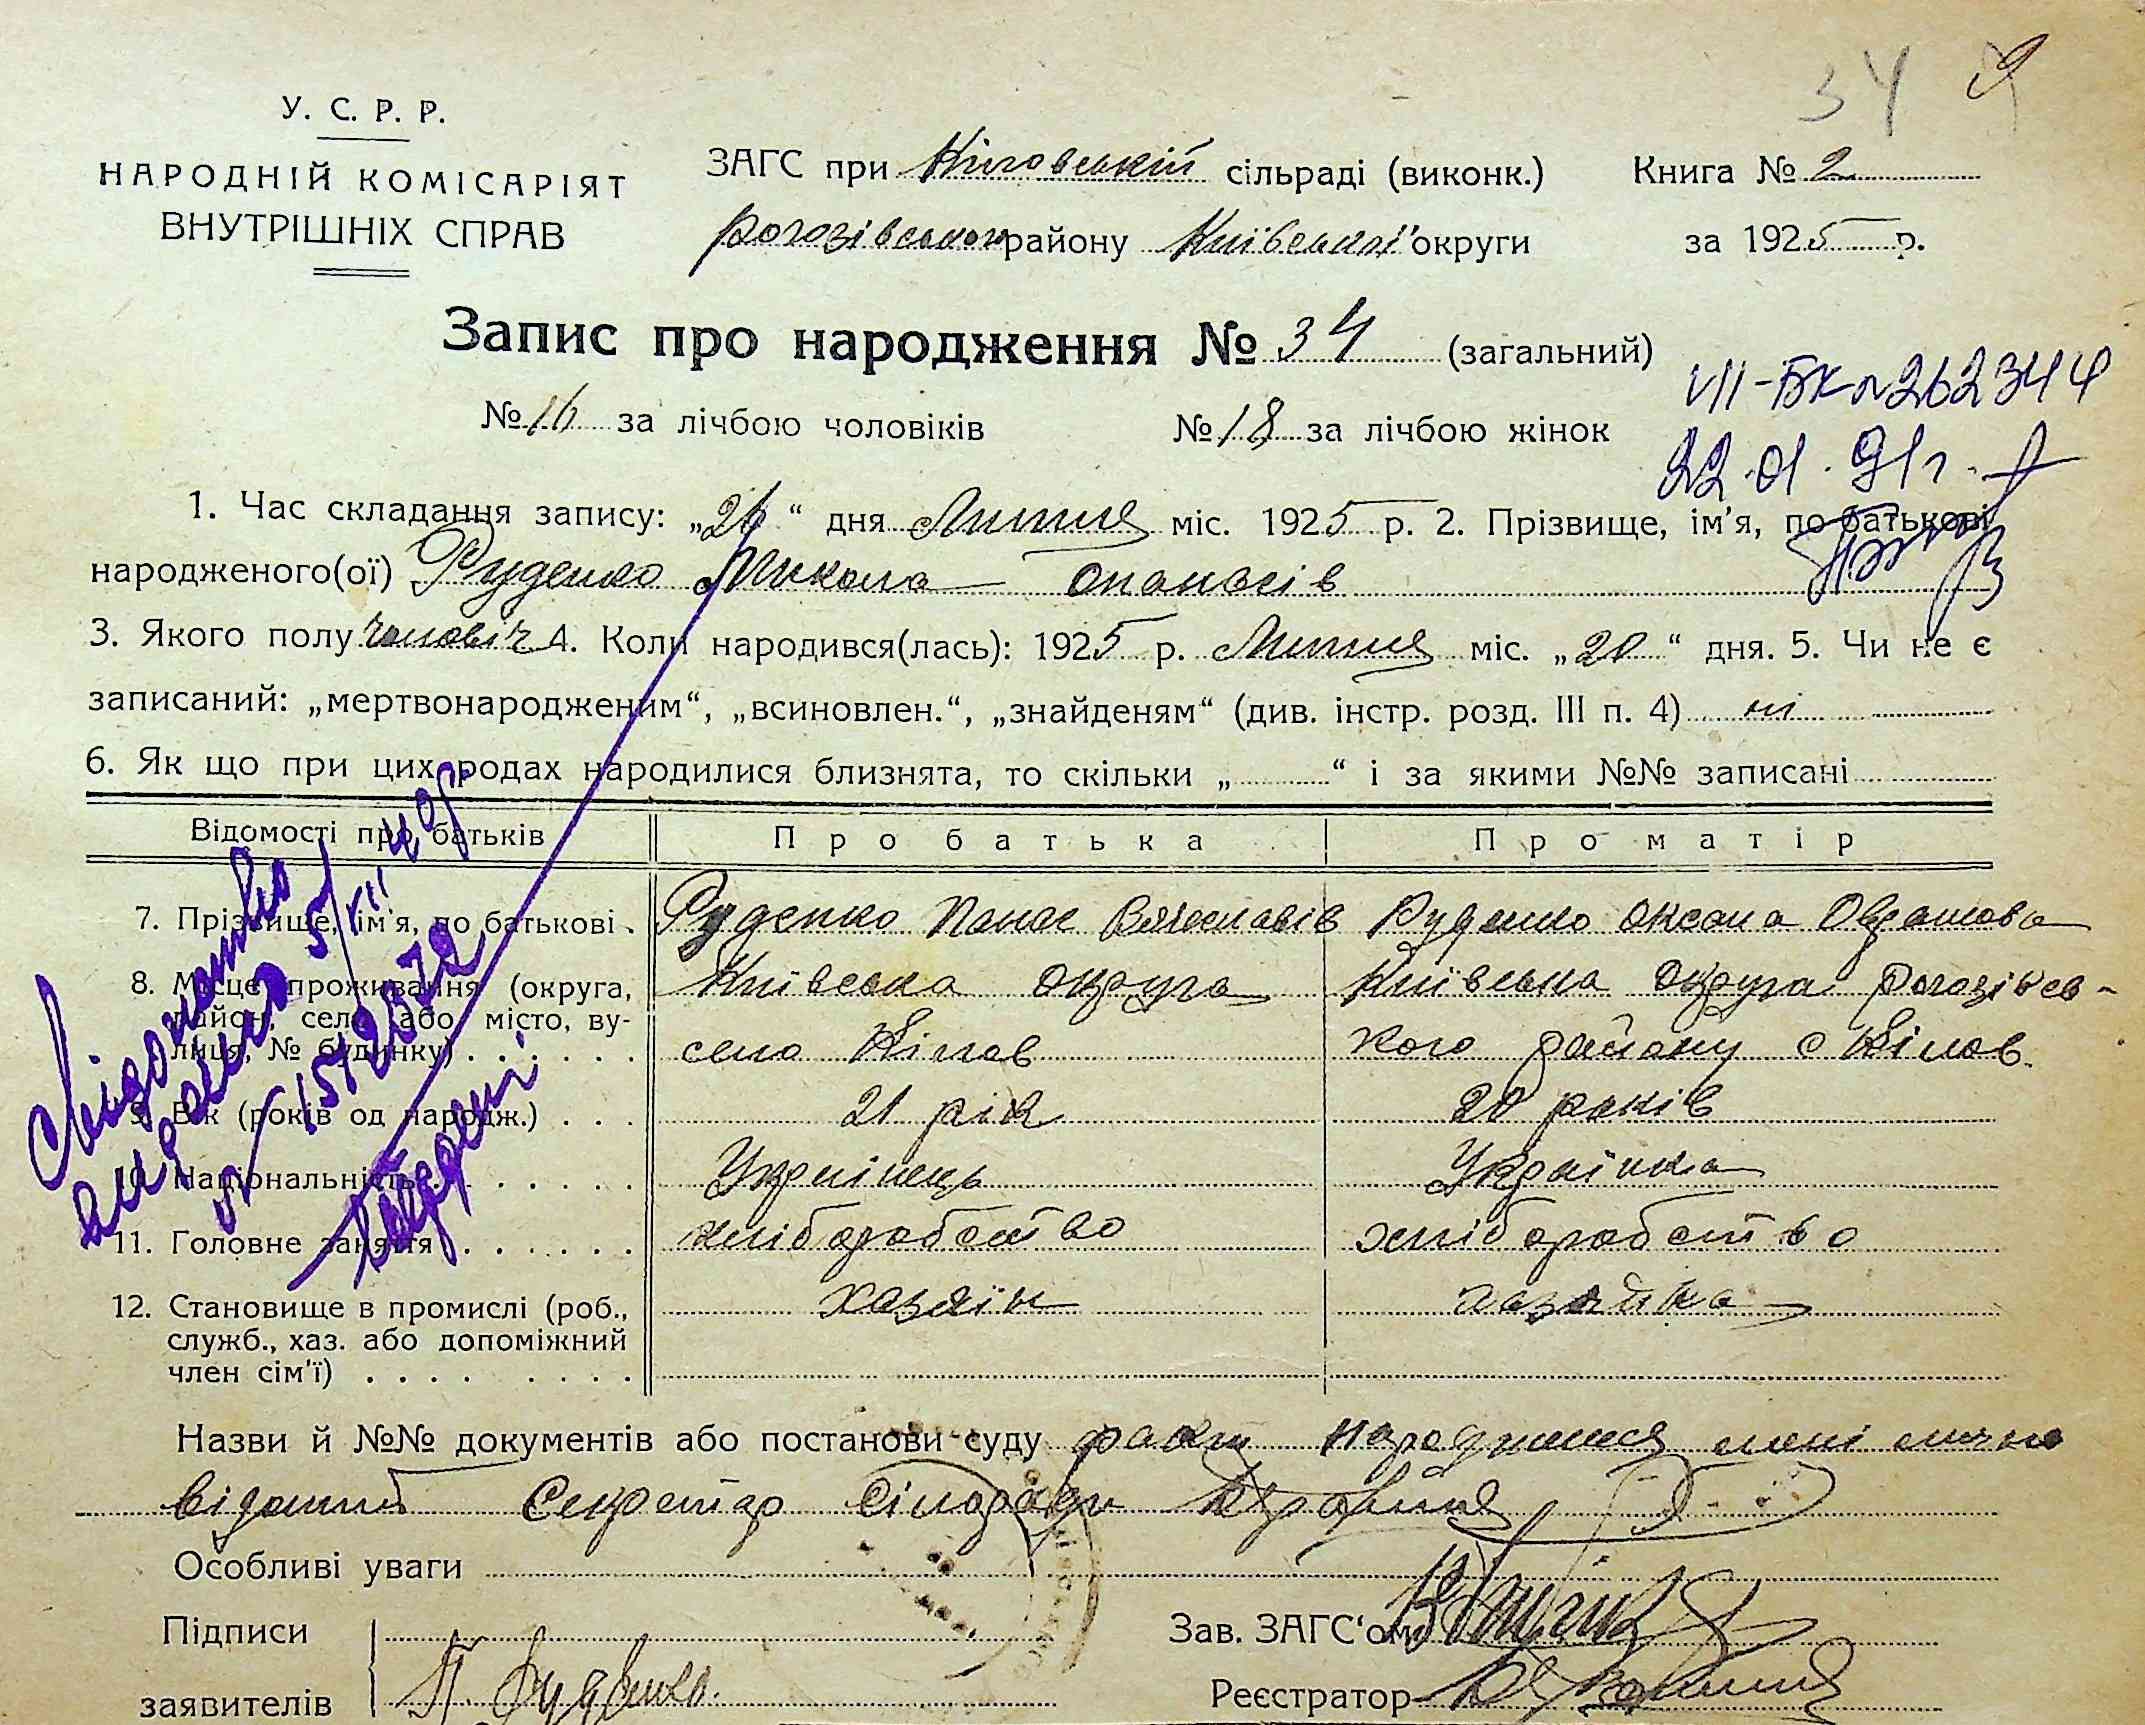 34
У. С. Р. Р.
НАРОДНІЙ КОМІСАРІЯТ
ВНУТРІШНІХ СПРАВ
ЗАГС при Кіловській сільраді (виконк.) Книга № 2
Рогозівського району Київської округи за 1925 р.
Запис про народження № 34 (загальний)
№ 16 за лічбою чоловіків № 18 за лічбою жінок
VII-БК № 262344
22.01.91г.
1. Час складання запису: „26“ дня Липня міс. 1925 р. 2. Прізвище, ім'я, по батькові
народженого(ої) Руденко Микола Опанасів
3. Якого полу чоловіч 4. Коли народився(лась): 1925 р. Липня міс. „20“ дня. 5. Чи не є
записаний: „мертвонародженим“, „всиновлен.“, „знайденям“ (див. інстр. розд. III п. 4) ні
6. Як що при цих родах народилися близнята, то скільки „ “ і за якими №№ записані
Відомості про батьків Про батька Про матір
7. Прізвище, ім'я, по батькові . Руденко Панас Вячеславів Руденко Оксана
8. Місце проживання (округа, Київська округа Київська округа Рогозівсь-
район, село або місто, ву-
лиця, № будинку) . . . . . . село Кілов кого району с Кілов.
9. Вік (років од народж.) . . . 21 рік 20 років
10. Національність . . . . . . Українець Українка
11. Головне заняття . . . . . . хліборобство хліборобство
12. Становище в промислі (роб., хазяїн хазяйка
служб., хаз. або допоміжний
член сім'ї) . . . . . . . .
Назви й №№ документів або постанови суду факт народження мені лично
відомий Секретар Сільради
Особливі уваги
Підписи Зав. ЗАГС'ом
заявителів П. Руденко. Реєстратор